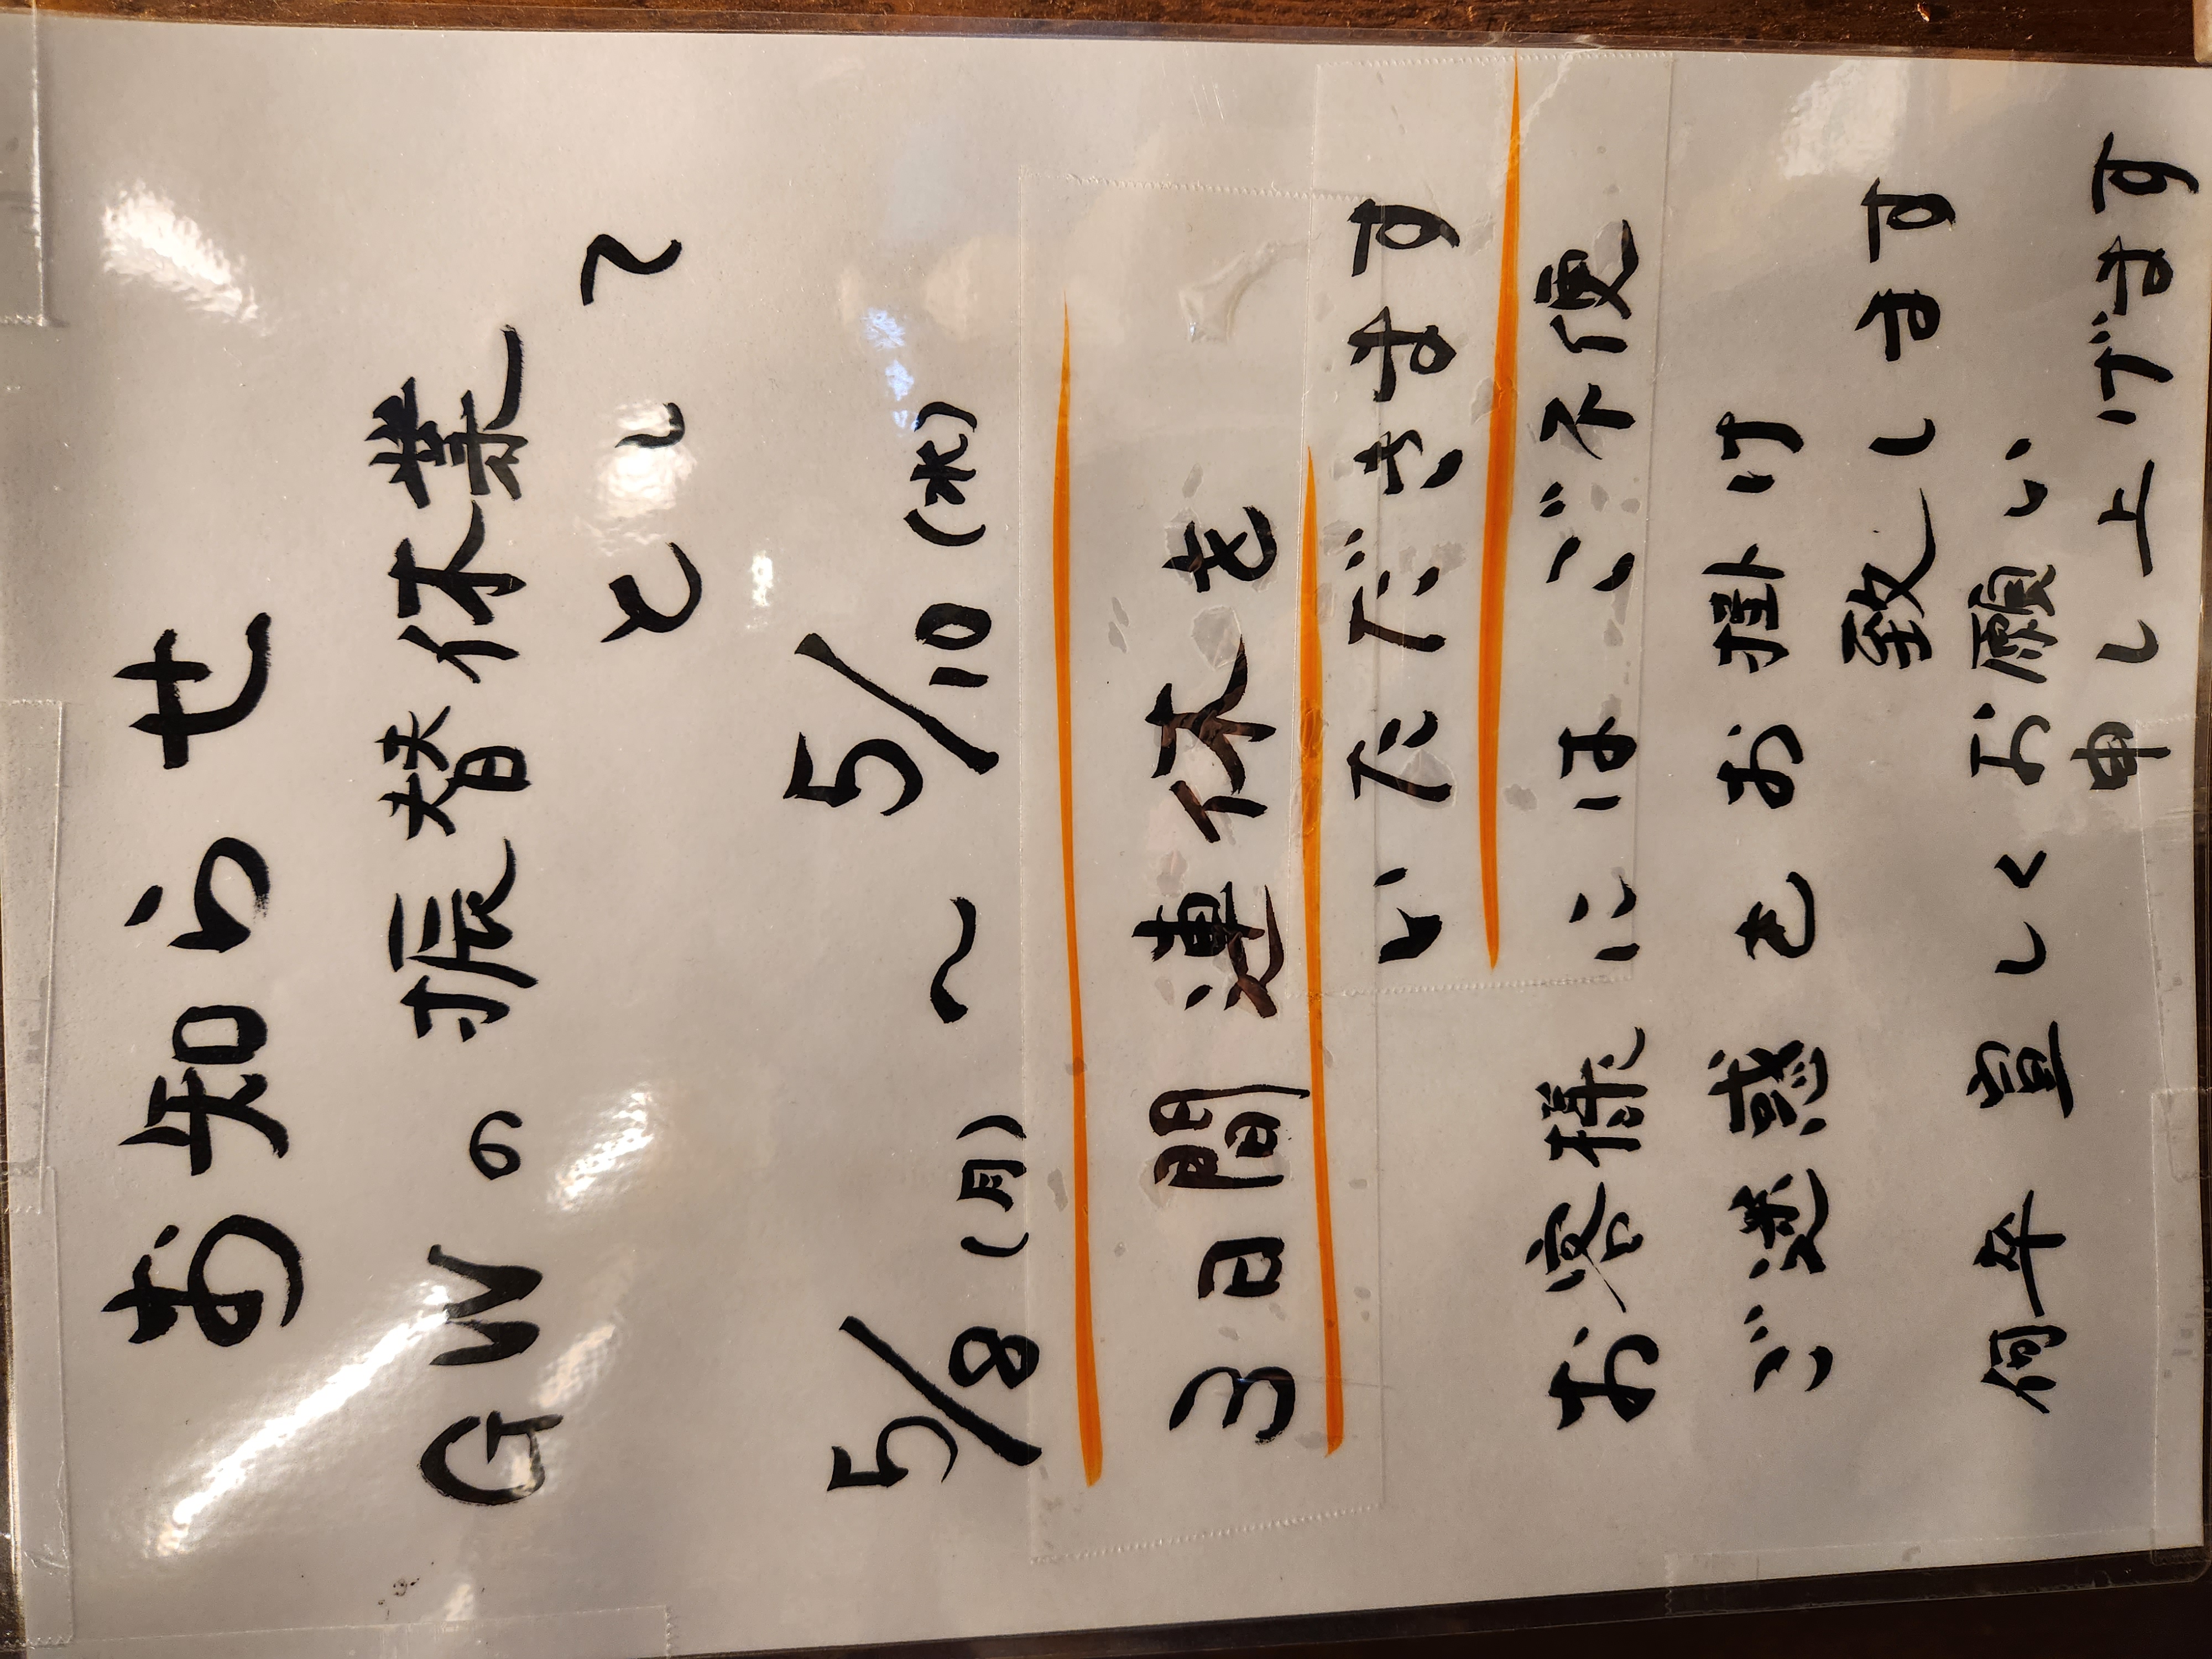 お知らせ
GWの振替休業
として
5/8(月)～5/10(水)
3日間連休を
いただきます
お客様にはご不便
ご迷惑をお掛け
致します
何卒宣しくお願い
申し上げます